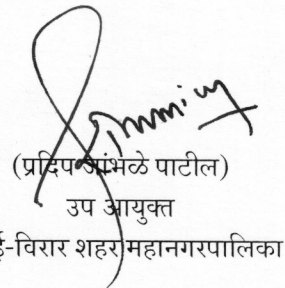 (प्रदिप जांभळे पाटील)
उप आयुक्त
ई-विरार शहर महानगरपालिका